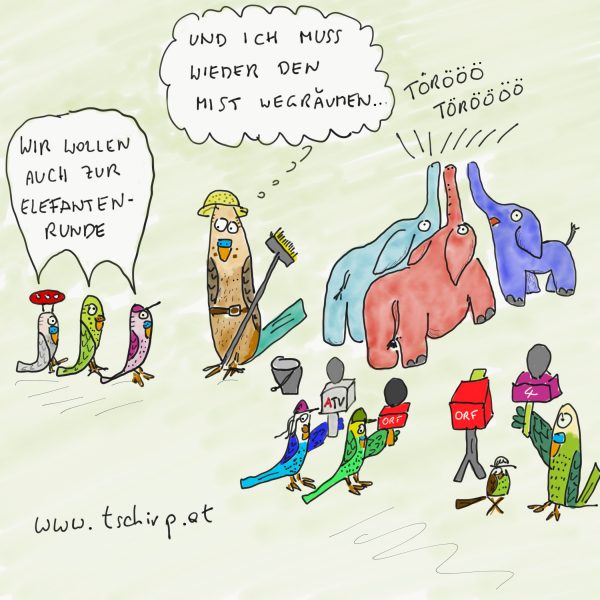 UND ICH MUSS
WIEDER DEN
MIST WEGRÄUMEN...
TÖRÖÖÖ
TÖRÖÖÖÖ
WIR WOLLEN
AUCH ZUR
ELEFANTEN-
RUNDE
ATV
ORF
ORF
4
www.tschirp.at